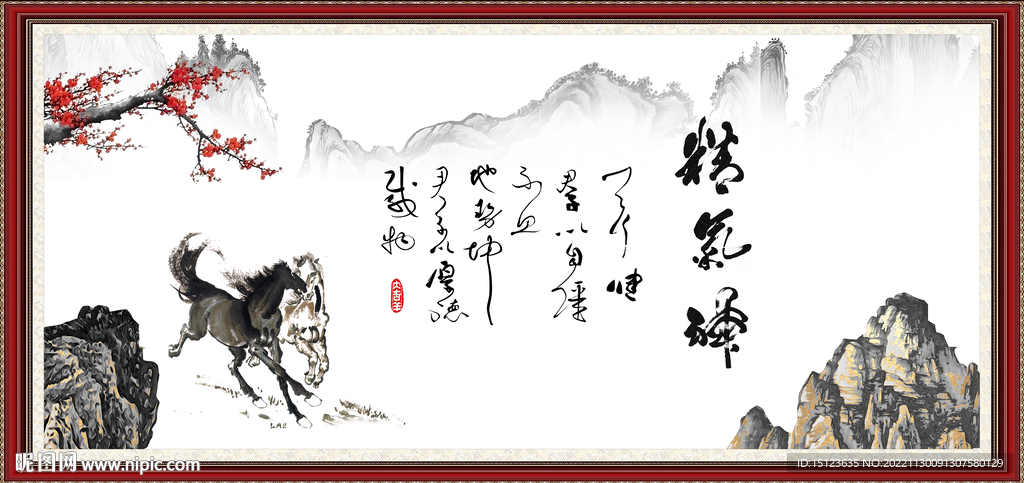 精氣神
天行健
君子以自彊
不息
地势坤
君子以厚德
载物
大吉羊
昵图网 www.nipic.com
ID:15123635 NO.20221130091307580129